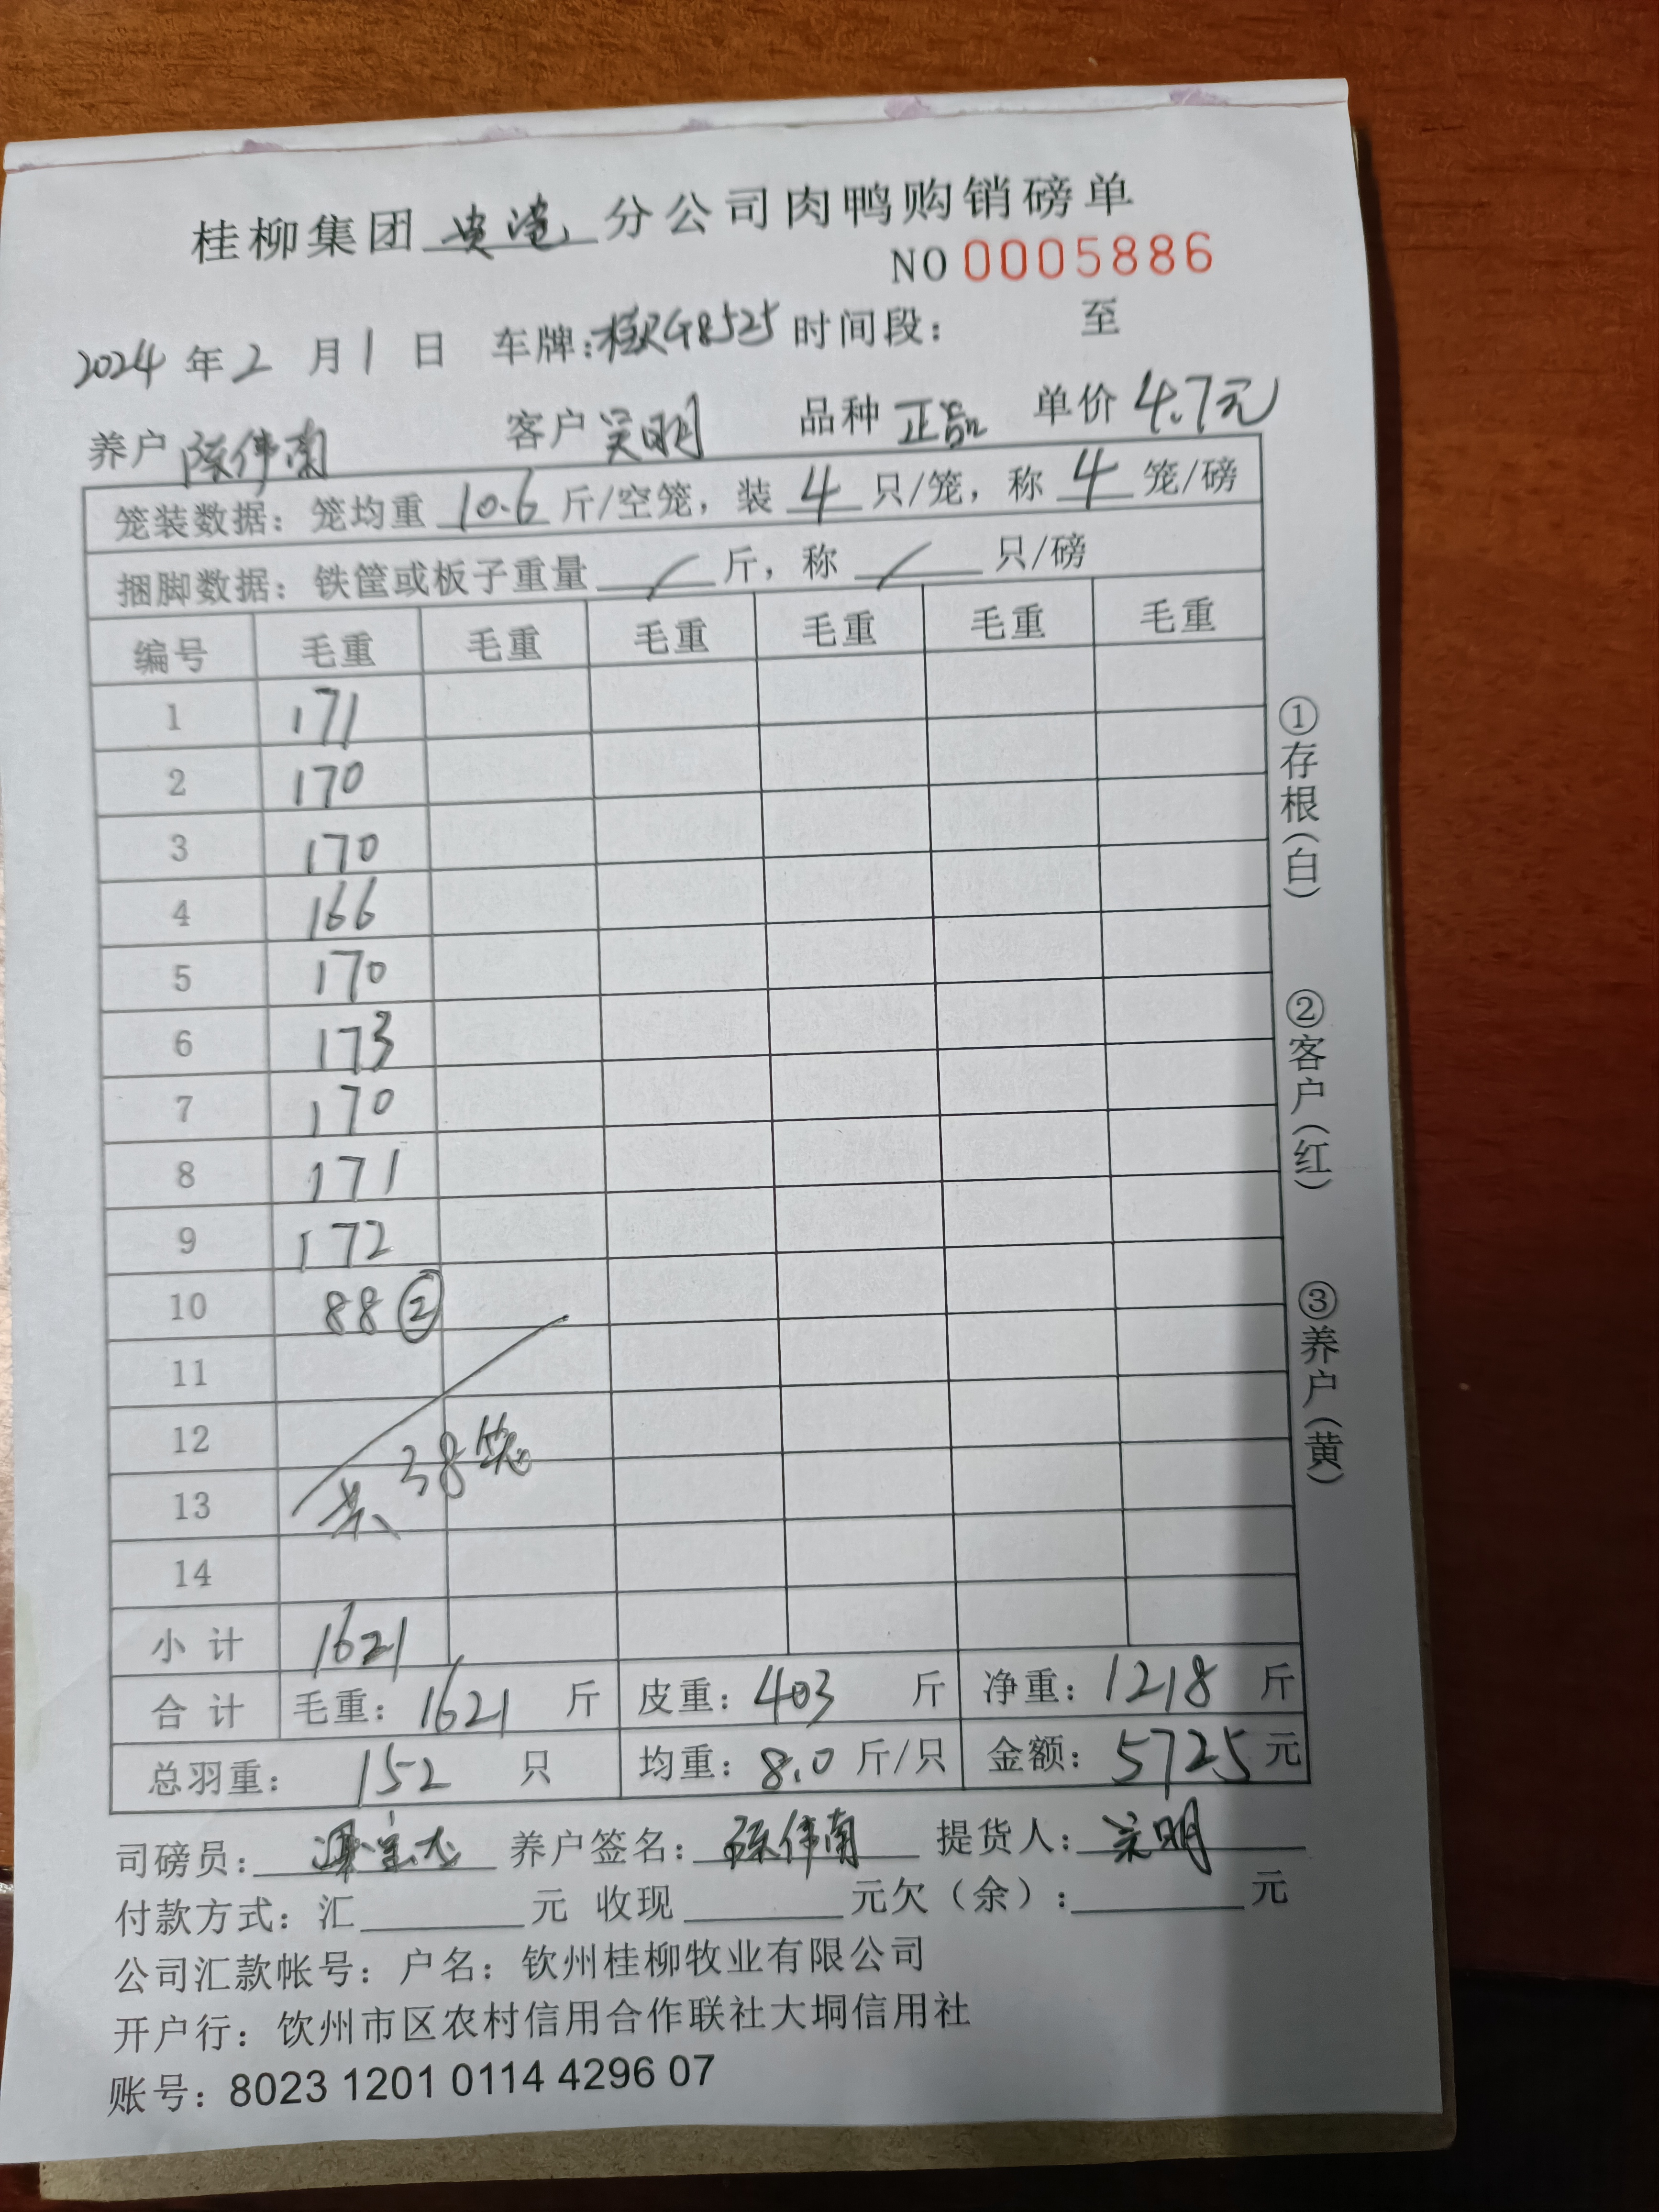 桂柳集团 贵港 分公司肉鸭购销磅单
NO 0005886
2024 年 2 月 1 日 车牌: G8525 时间段: 至
养户 陈伟南 客户 吴明 品种 正品 单价 4.7元
笼装数据: 笼均重 10.6 斤/空笼, 装 4 只/笼, 称 4 笼/磅
捆脚数据: 铁筐或板子重量 / 斤, 称 / 只/磅
编号 毛重 毛重 毛重 毛重 毛重 毛重
1 171
2 170
3 170
4 166
5 170
6 173
7 170
8 171
9 172
10 88 ②
11
12
13 共38笼
14
小 计 1621
合 计 毛重: 1621 斤 皮重: 403 斤 净重: 1218 斤
总羽重: 152 只 均重: 8.0 斤/只 金额: 5725 元
司磅员: 养户签名: 陈伟南 提货人: 吴明
付款方式: 汇 元 收现 元欠（余）: 元
公司汇款帐号: 户名: 钦州桂柳牧业有限公司
开户行: 钦州市区农村信用合作联社大垌信用社
账号: 8023 1201 0114 4296 07
①存根(白)
②客户(红)
③养户(黄)